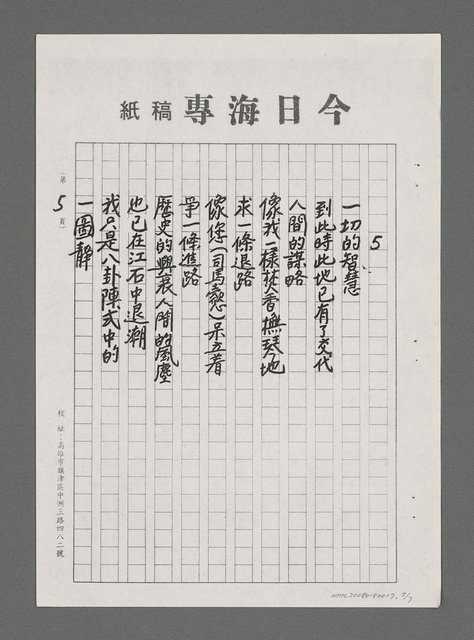 今日海專稿紙
5
一切的智慧
到此時此地已有了交代
人間的謀略
像我一樣焚香撫琴地
求一條退路
像您（司馬懿）呆立着
爭一條進路
歷史的興衰人間的風塵
也已在江石中退潮
我只是八卦陣式中的
一圖靜
（第5頁）
校址：高雄市旗津區中洲三路四八二號
NML20080180017, 5/7